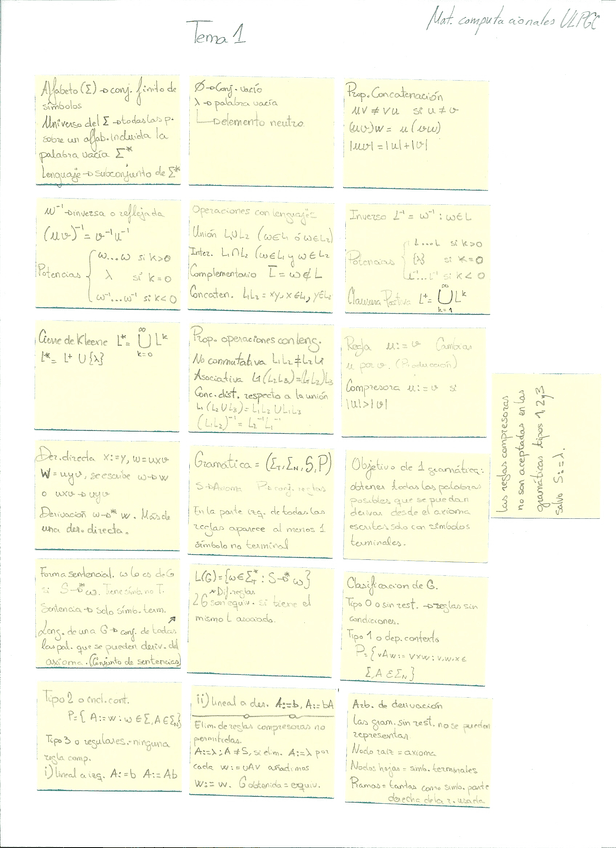 Mat. computacionales ULPGC
Tema 1
Alfabeto (Σ) → conj. finito de
símbolos
Universo del Σ → todas las p.
sobre un alfab. incluida la
palabra vacía Σ*
Lenguaje → subconjunto de Σ*
Ø → Conj. vacío
λ → palabra vacía
↳ elemento neutro
Prop. Concatenación
uv ≠ vu si u ≠ v
(uv)w = u(vw)
|uv| = |u| + |v|
w⁻¹ → inversa o reflejada
(uv)⁻¹ = v⁻¹u⁻¹
Potencias { w...w si k>0
λ si k=0
w⁻¹...w⁻¹ si k<0
Operaciones con lenguajes
Unión L₁UL₂ (w∈L₁ ó w∈L₂)
Inter. L₁∩L₂ (w∈L₁ y w∈L₂)
Complementario L̄ = w∉L
Concaten. L₁L₂ = xy, x∈L₁, y∈L₂
Inverso L⁻¹ = w⁻¹ : w∈L
Potencias { L...L si k>0
{λ} si k=0
L⁻¹...L⁻¹ si k<0
Clausura Positiva L⁺ = ∞ U k=1 Lᵏ
Cierre de Kleene L* = ∞ U k=0 Lᵏ
L* = L⁺ U {λ}
Prop. operaciones con leng.
No conmutativa L₁L₂ ≠ L₂L₁
Asociativa L₁(L₂L₃) = (L₁L₂)L₃
Conc. dist. respecto a la unión
L₁(L₂UL₃) = L₁L₂ U L₁L₃
(L₁L₂)⁻¹ = L₂⁻¹L₁⁻¹
Regla u ::= v Cambias
u por v. (Producción)
Compresora u ::= v si
|u|>|v|
Las reglas compresoras
no son aceptadas en las
gramáticas tipos 1, 2 y 3
salvo S ::= λ.
Der. directa x ::= y, w = uxv
W = uyv, se escribe w → w
o uxv → uyv
Derivación w →* w. Más de
una der. directa.
Gramática = (Σ_T, Σ_N, S, P)
S → Axioma P → conj. reglas
En la parte izq. de todas las
reglas aparece al menos 1
símbolo no terminal
Objetivo de 1 gramática:
obtener todas las palabras
posibles que se puedan
derivar desde el axioma
escritas solo con símbolos
terminales.
Forma sentencial. w lo es de G
si S →* w. Tiene simb. no T.
Sentencia → solo símb. term.
Leng. de una G → conj. de todas
las pal. que se pueden deriv. del
axioma. (Conjunto de sentencias)
L(G) = {w∈Σ_T* : S →* w}
* Dif. reglas
2 G son equiv. si tiene el
mismo L asociado.
Clasificación de G.
Tipo 0 o sin rest. → reglas sin
condiciones.
Tipo 1 o dep. contexto
P = { vAw ::= vxw : v,w,x ∈
Σ, A ∈ Σ_N }
Tipo 2 o indt. cont.
P = { A ::= w : w∈Σ, A∈Σ_N }
Tipo 3 o regulares → ninguna
regla comp.
i) lineal a izq. A ::= b A ::= Ab
ii) lineal a der. A ::= b, A ::= bA
Elim. de reglas compresoras no
permitidas.
A ::= λ : A ≠ S, se elim. A ::= λ y por
cada w ::= uAv añadimos
W ::= w. G obtenida = equiv.
Arb. de derivación
Las gram. sin rest. no se pueden
representar
Nodo raíz = axioma
Nodos hojas = simb. terminales
Ramas = tantas como simb. parte
derecha de la r. usada